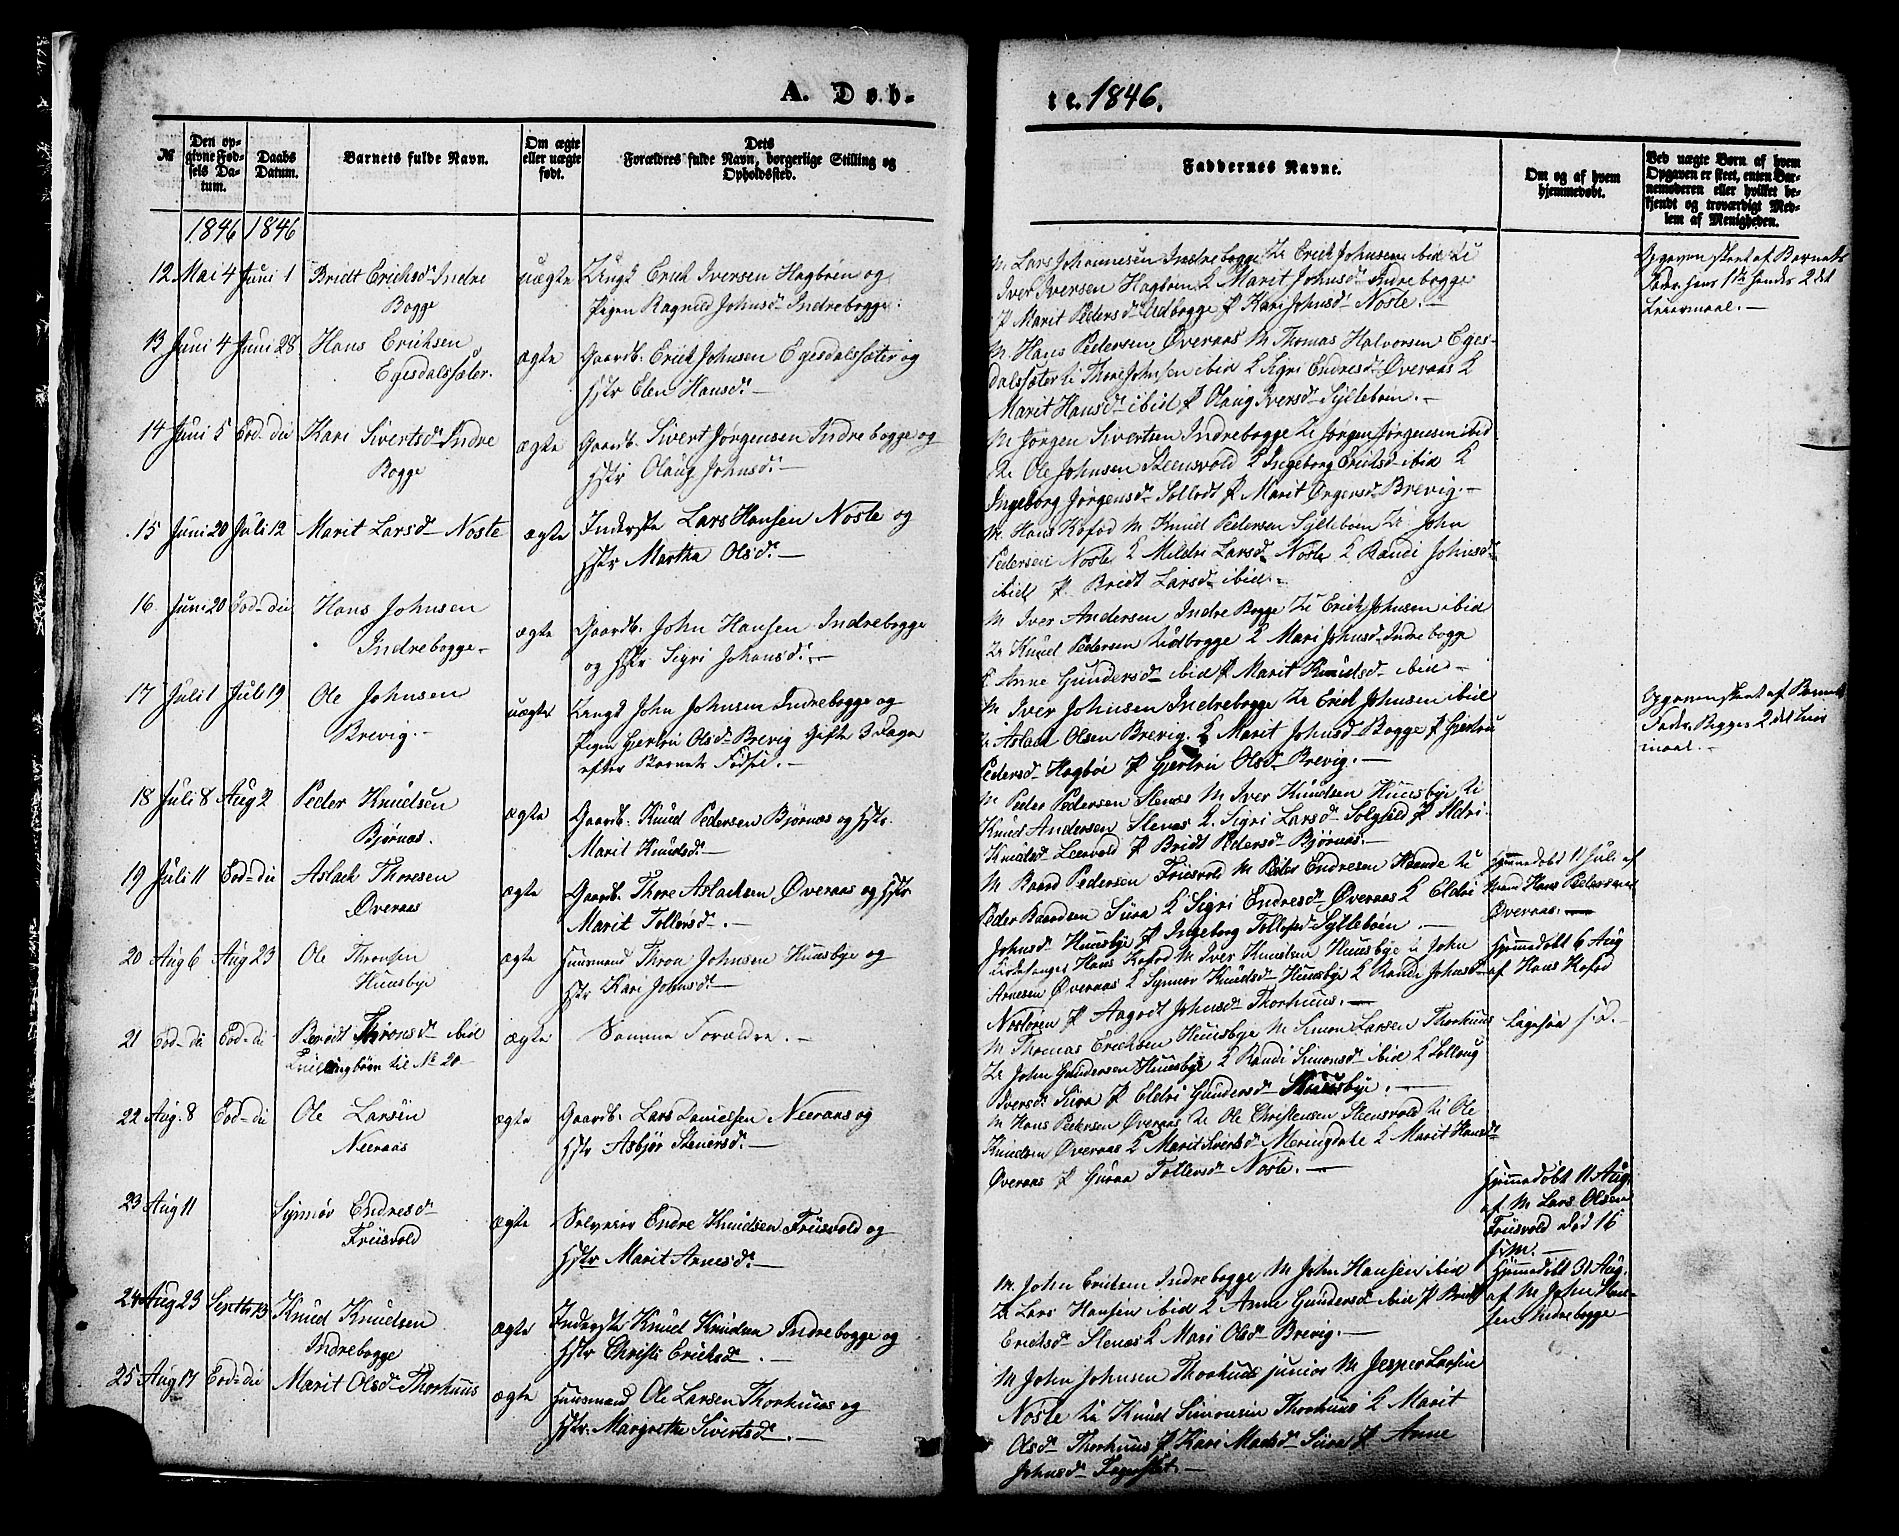 A. Døb-
te. 1846.
№
Den op-
givne Fød-
sels Da-
tum.
Daabs
Datum.
Barnets fulde Navn.
Om ægte
eller uægte
født.
Dets
Forældres fulde Navn, borgerlige Stilling og
Opholdssted.
Faddernes Navne.
Om og af hvem
hjemmedøbt.
Ved uægte Børn af hvem
Opgaven er skeet, enten Bar-
nemoderen eller hvilket be-
kjendt og troværdigt Med-
lem af Menigheden.
1846 1846
12 Mai 4 Juni 1 Bridt Erichsd. Indre
Bogge
uægte
Ungk Erich Iversen Hagbøen og
Pigen Ragnild Johnsd. Indrebogge.
M Lars Johannesen Indrebogge U Erich Johnsen ibid U
Iver Iversen Hagbøen K Marit Johnsd. Indrebogge
P Marit Pedersd. Udbogge P Kari Johnsd. Noste.
Opgaven skeet af Barnets
Fader, hans 1te hendes 2det
Leiermaal.
13 Juni 4 Juni 28 Hans Erichsen
Egesdalssæter.
ægte
Gaardb. Erich Johnsen Egesdalssæter og
Hstr Elen Hansd.
M Hans Pedersen Øveraas M Thomas Halvorsen Eges-
dalssæter U Thore Johnsen ibid K Sigri Endresd. Øveraas K
Marit Hansd. ibid P Olaug Iversd. Syltebøen.
14 Juni 5 Eod. die Kari Sivertsd. Indre
Bogge
ægte
Gaardb. Sivert Jørgensen Indrebogge og
Hstr Olaug Johnsd.
M Jørgen Sivertsen Indrebogge U Jørgen Jørgensen ibid
U Ole Johnsen Steensvold K Ingeborg Erichsd. ibid K
Ingeborg Jørgensd. P Marit Brevig.
15 Juni 20 Juli 12 Marit Larsd. Noste
ægte
Inderste Lars Hansen Noste og
Hstr Martha Olsd.
M. Hans Kofod M Knud Pedersen Syltebøen U John
Pedersen Noste K Mildri Larsd. Noste K Randi Johnsd.
ibid P Bridt Larsd. ibid.
16. Juni 20 Eod. die Hans Johnsen
Indrebogge
ægte
Gaardb. John Hansen Indrebogge
og Hstr Sigri Johansd.
M Iver Andersen Indre Bogge U Erich Johnsen ibid
U Knud Pedersen Udbogge K Mari Johnsd. Indrebogge
K Anne Gundersd. ibid P Marit Knudsd. ibid
17 Juli 1 Juli 19 Ole Johnsen
Brevig.
uægte
Ungk John Johnsen Indrebogge og
Pigen Gjertru Olsd. Brevig Gifte 3 Dage
efter Barnets Fødsel.
M Iver Johnsen Indrebogge U Erich Johnsen ibid
U Aslach Olsen Brevig. K Marit Johnsd. Bogge P Gjertru
Pedersd. Hagbøe P Gjertru Olsd. Brevig.
Opgaven skeet af Barnets
Fader. Begges 2det Leier
maal.
18 Juli 8 Aug 2 Peder Knudsen
Bjørnæs.
ægte
Gaardb. Knud Pedersen Bjørnæs og Hstr.
Marit Knudsd.
M Peder Pedersen Stenæs M Iver Knudsen Huusbye U
Knud Andersen Stenæs K. Sigri Larsd. P Eldri
Knudsd. P Bridt Pedersd. Bjørnæs.
19 Juli 11 Eod. die Aslach Thoresen
Øveraas
ægte
Gaardb. Thore Aslachsen Øveraas og Hstr
Marit Tollefsd.
M Baard Pedersen Friisvold M Peder Endresen U
Peder Baardsen Siira K Sigri Endresd. Øveraas K Eldri
Johnsd. Huusbye P Ingeborg Tollefsd. Syltebøen.
Hjemmedøbt 11 Juli af
Hans Pedersen
Øveraas.
20 Aug 6 Aug 23 Ole Thronsen
Huusbye
ægte
Huusmand Thron Johnsen Huusbye og
Hstr Kari Johnsd.
Kirkesanger Hans Kofod M Iver Knudsen Huusbye U John
Arnesen Øveraas K Synnøv Knudsd. Huusbye K Randi Johnsd.
P Aagodt Johnsd. Thorhuus.
Hjemmedøbt 6 Aug
af Hans Kofod
21 Eod. die Eod. die Beredt Thronsd. ibid
Tvillingbørn til No 20
ægte
Samme Forældre.
M Thomas Erichsen Huusbye M Simon Larsen Thorhuus
U John Gundersen Huusbye K Randi Simonsd. ibid K Sollaug
Iversd. Siira P Eldri Gundersd. Huusbye.
Ligesaa s.d.
22 Aug. 8 Eod. die Ole Larsen
Neeraas
ægte
Gaardb. Lars Danielsen Neeraas og
Hstr Asbjør Stenersd.
M Hans Pedersen Øveraas U Ole Christensen Steensvold U Ole
Knudsen Øveraas K Marit Sivertsd. Meringdale K Marit Hansd.
Øveraas P Guraa Tollefsd. Noste.
23 Aug 11 Synnøv Endresd.
Friisvold
ægte
Selveier Endre Knudsen Friisvold og
Hstr Marit Arnesd.
Hjemmedøbt 11 Aug.
af M Lars Olsen
Friisvold død 16
s.M.
24 Aug 23 Septbr 13 Knud Knudsen
Indrebogge
ægte
Inderste Knud Knudsen Indrebogge og
Hstr Christi Erichsd.
M. John Erichsen Indrebogge M John Hansen ibid
U Lars Hansen ibid K Anne Gundersd. ibid P Bridt
Erichsd. Stenæs K Mari Olsd. Brevig.
Hjemmedøbt 31 Aug.
af M John Han-
sen Indrebogge
25 Aug 17 Eod. die Marit Olsd. Thorhuus
ægte
Huusmand Ole Larsen Thorhuus og
Hstr. Margrethe Sivertsd.
M John Johnsen Thorhuus junior M Jesper Larsen
Noste U Knud Simonsen Thorhuus K Marit
Olsd. Thorhuus P Kari Madsd. Siira P Anne
Johnsd.